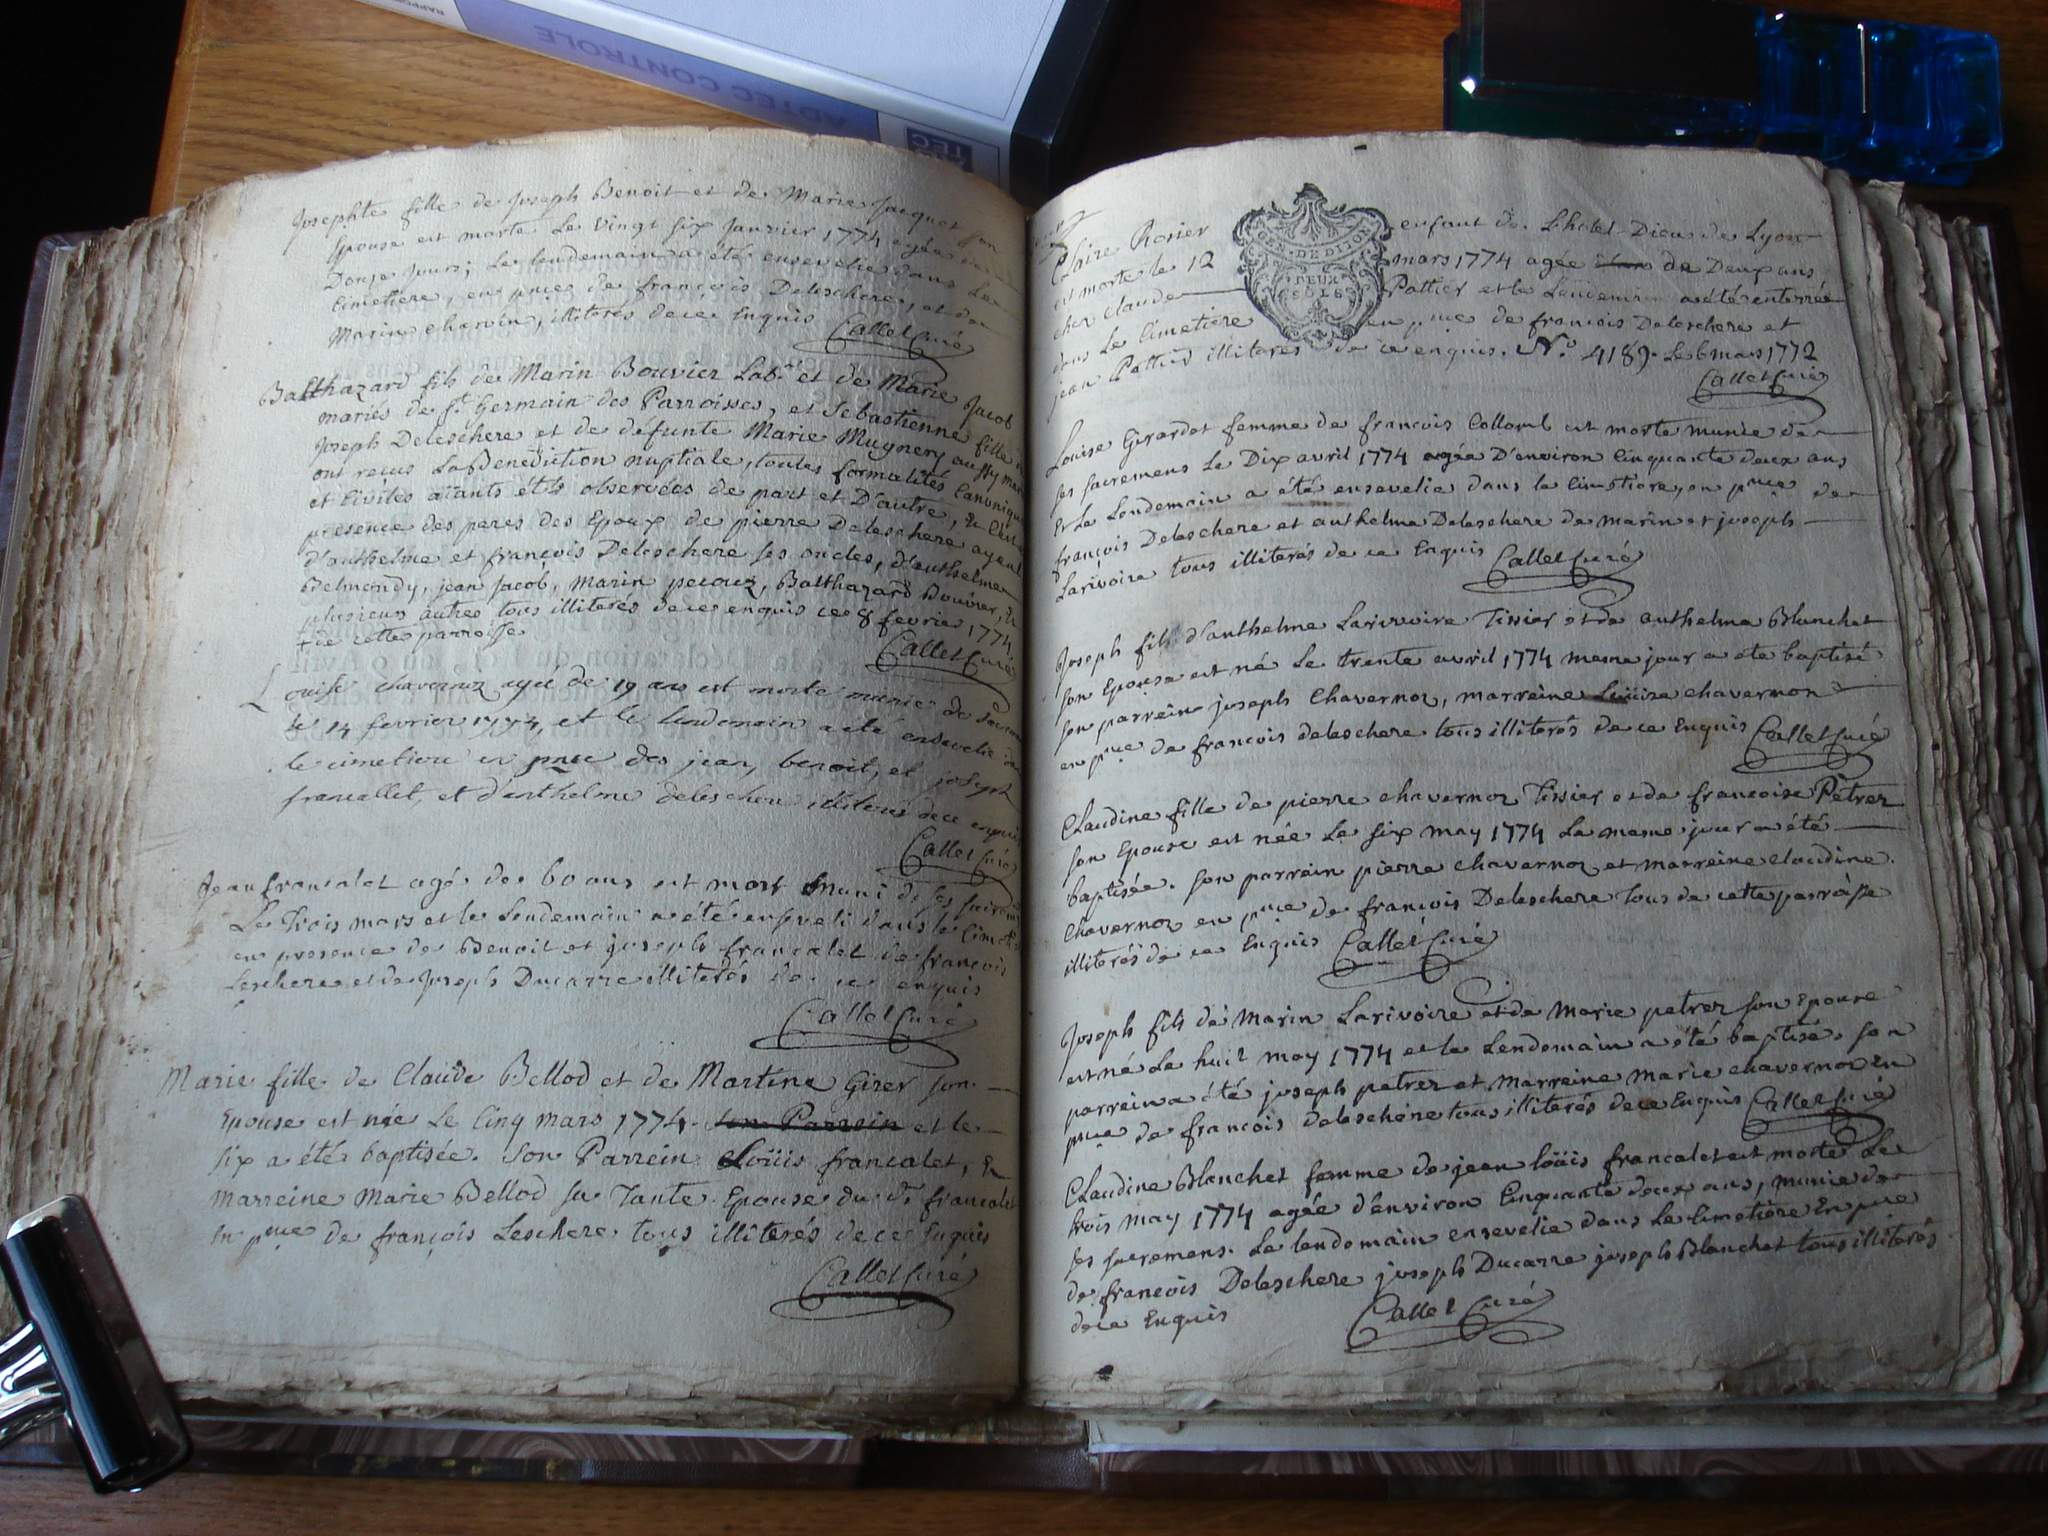 ADTEC CONTROLE
Josephte fille de Joseph Benoit et de Marie Jacquet son
Epouse est morte Le vingt six Janvier 1774 agée de
Donze Jours; Le lendemain a été ensevelie dans Le
Cimetiere, en pnce de françois Deleschere, et de
Marin charvin, illiterés de ce Enquis Callet Curé
Balthazard fils de Marin Bouvier Labr. et de Marie Jacob
mariés de St. Germain des Parroisses, et Sebastienne fille
Joseph Deleschere et de défunte Marie Mugnery aussy
ont recus La Benediction nuptiale, toutes formalités Canoniques
et Civiles aïants étés observées de part et D'autre, En
presence des peres des Epoux de pierre Deleschere ayeul
d'anthelme et françois Deleschere ses oncles, d'anthelme
Belmondy, jean Jacob, Marin pecouz, Balthazard Bouvier, &
plusieurs autres tous illiterés de ce enquis ce 8 fevrier 1774
+ de cette parroisse Callet Curé
Louise chavernoz agée de 19 ans est morte munie de
le 14 fevrier 1774, et le lendemain a été ensevelie
le cimetiere en pnce des jean, benoit, et joseph
francallet, et d'anthelme deleschere illiterés de ce enquis
Callet Curé
Jean francalet agé de 60 ans est mort Muni de ses
Le trois mars et le Lendemain a été enseveli dans le
en presence de Benoit et joseph francalet de francois
Leschere et de Joseph Ducarre illiterés de ce enquis
Callet Curé
Marie fille de Claude Bellod et de Martine Girer son
Epouse est née Le Cinq mars 1774. son Parrein et le
six a été baptisée. Son Parrein Loüis francalet, Et
Marreine Marie Bellod sa Tante Epouse du dt. francalet
En pnce de françois Leschere tous illiterés de ce Enquis
Callet Curé
Claire Rosier enfant de L'hotel Dieu de Lyon
est morte le 12 mars 1774 agée de Deux ans
chez claude Pottier et le Lendemain a été enterrée
dans Le Cimetiere en pnce de francois Deleschere et
jean Pottier illiterés de ce enquis. No. 4189. Le 6 mars 1772
GEN. DE DIJON
DEUX
SOLS
Callet Curé
Louise Girardot femme de francois Collomb est morte munie de
ses sacremens Le Dix avril 1774 agée D'environ Cinquante deux ans
Et Le Lendemain a été ensevelie dans le Cimetiere, en pnce de
françois Deleschere et anthelme Deleschere de Marin et joseph
Larivoire tous illiterés de ce Enquis Callet Curé
Joseph fils d'anthelme Larivoire Tissier et de anthelma Blanchet
son Epouse est né Le trente avril 1774 meme jour a été baptisé
son parrein joseph Chavernoz, marreine Loüise chavernoz
en pnce de francois deleschere tous illiterés de ce Enquis Callet Curé
Claudine fille de pierre chavernoz Tissier et de francoise Petrez
son Epouse est née Le six may 1774 La meme jour a été
baptisée. son parrein pierre chavernoz et marreine claudine
chavernoz en pnce de françois Deleschere Tous de cette parroisse
illiterés de ce Enquis Callet Curé
Joseph fils de Marin Larivoire et de Marie petrez son Epouse
est né Le huit may 1774 et le Lendemain a été baptisé. son
parrein a été joseph petrez et Marreine Marie chavernoz En
pnce de francois deleschere tous illiterés de ce Enquis Callet Curé
Claudine Blanchet femme de jean loüis francalet est morte Le
trois may 1774 agée d'environ Cinquante deux ans, munie de
ses sacremens. Le lendemain ensevelie dans Le Cimetiere En pnce
de francois Deleschere joseph Ducarre joseph Blanchet tous illiterés
de ce Enquis Callet Curé